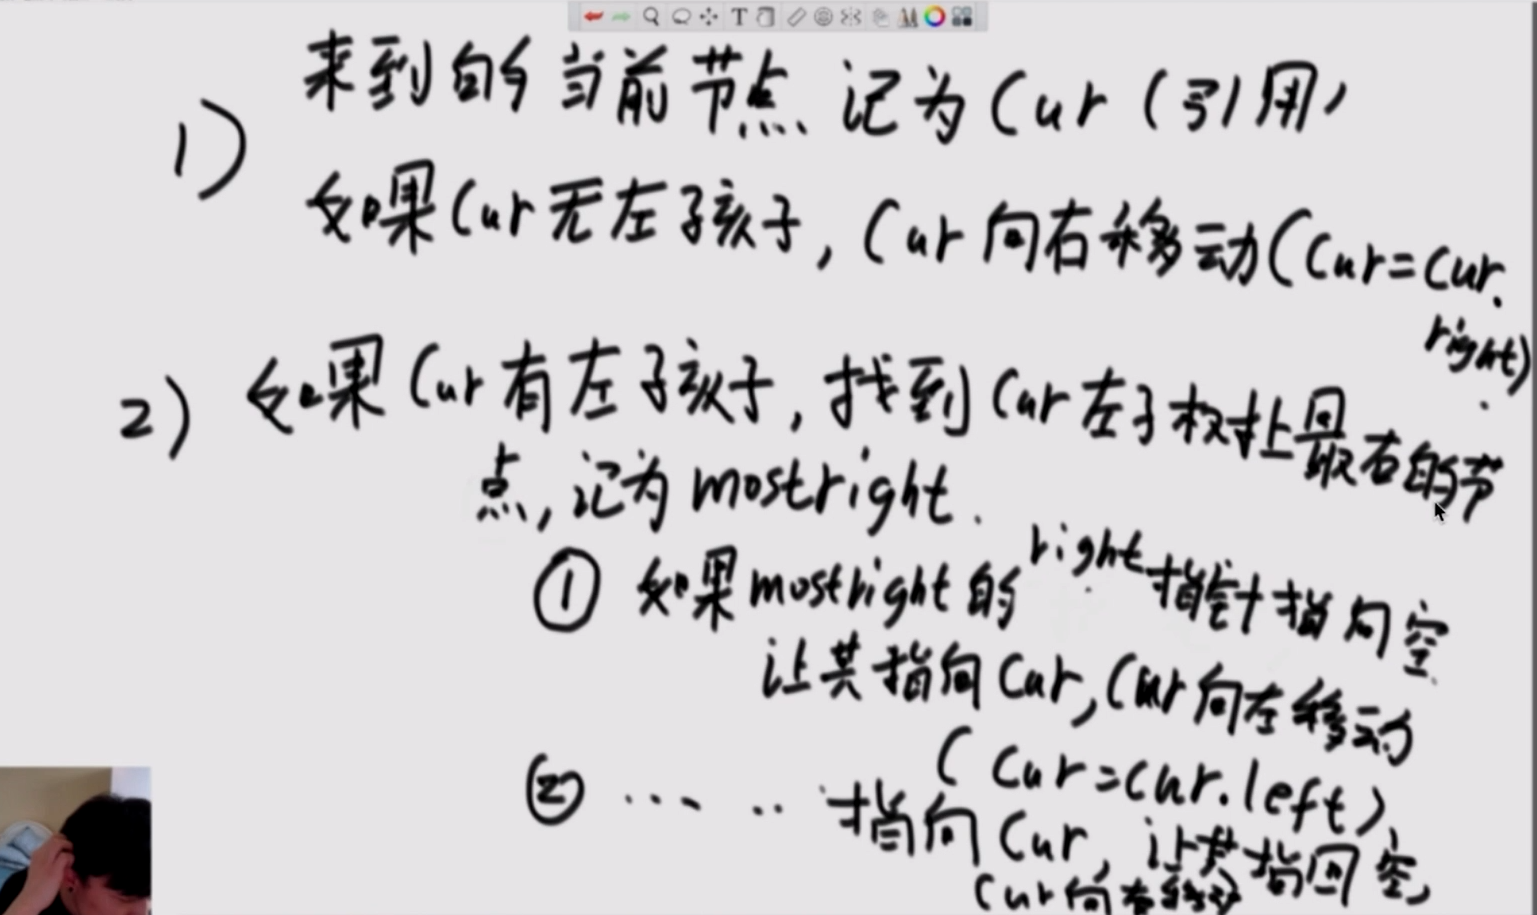 来到的当前节点记为Cur(引用)
1)
如果Cur无左子孩子,Cur向右移动(Cur=Cur.
right)
2) 如果Cur有左子孩子,找到Cur左子树上最右的节
点,记为mostright.
① 如果mostright的right指针指向空
让其指向Cur,Cur向左移动
(Cur=Cur.left)
② ... .. 指向Cur,让其指回空,
Cur向右移动